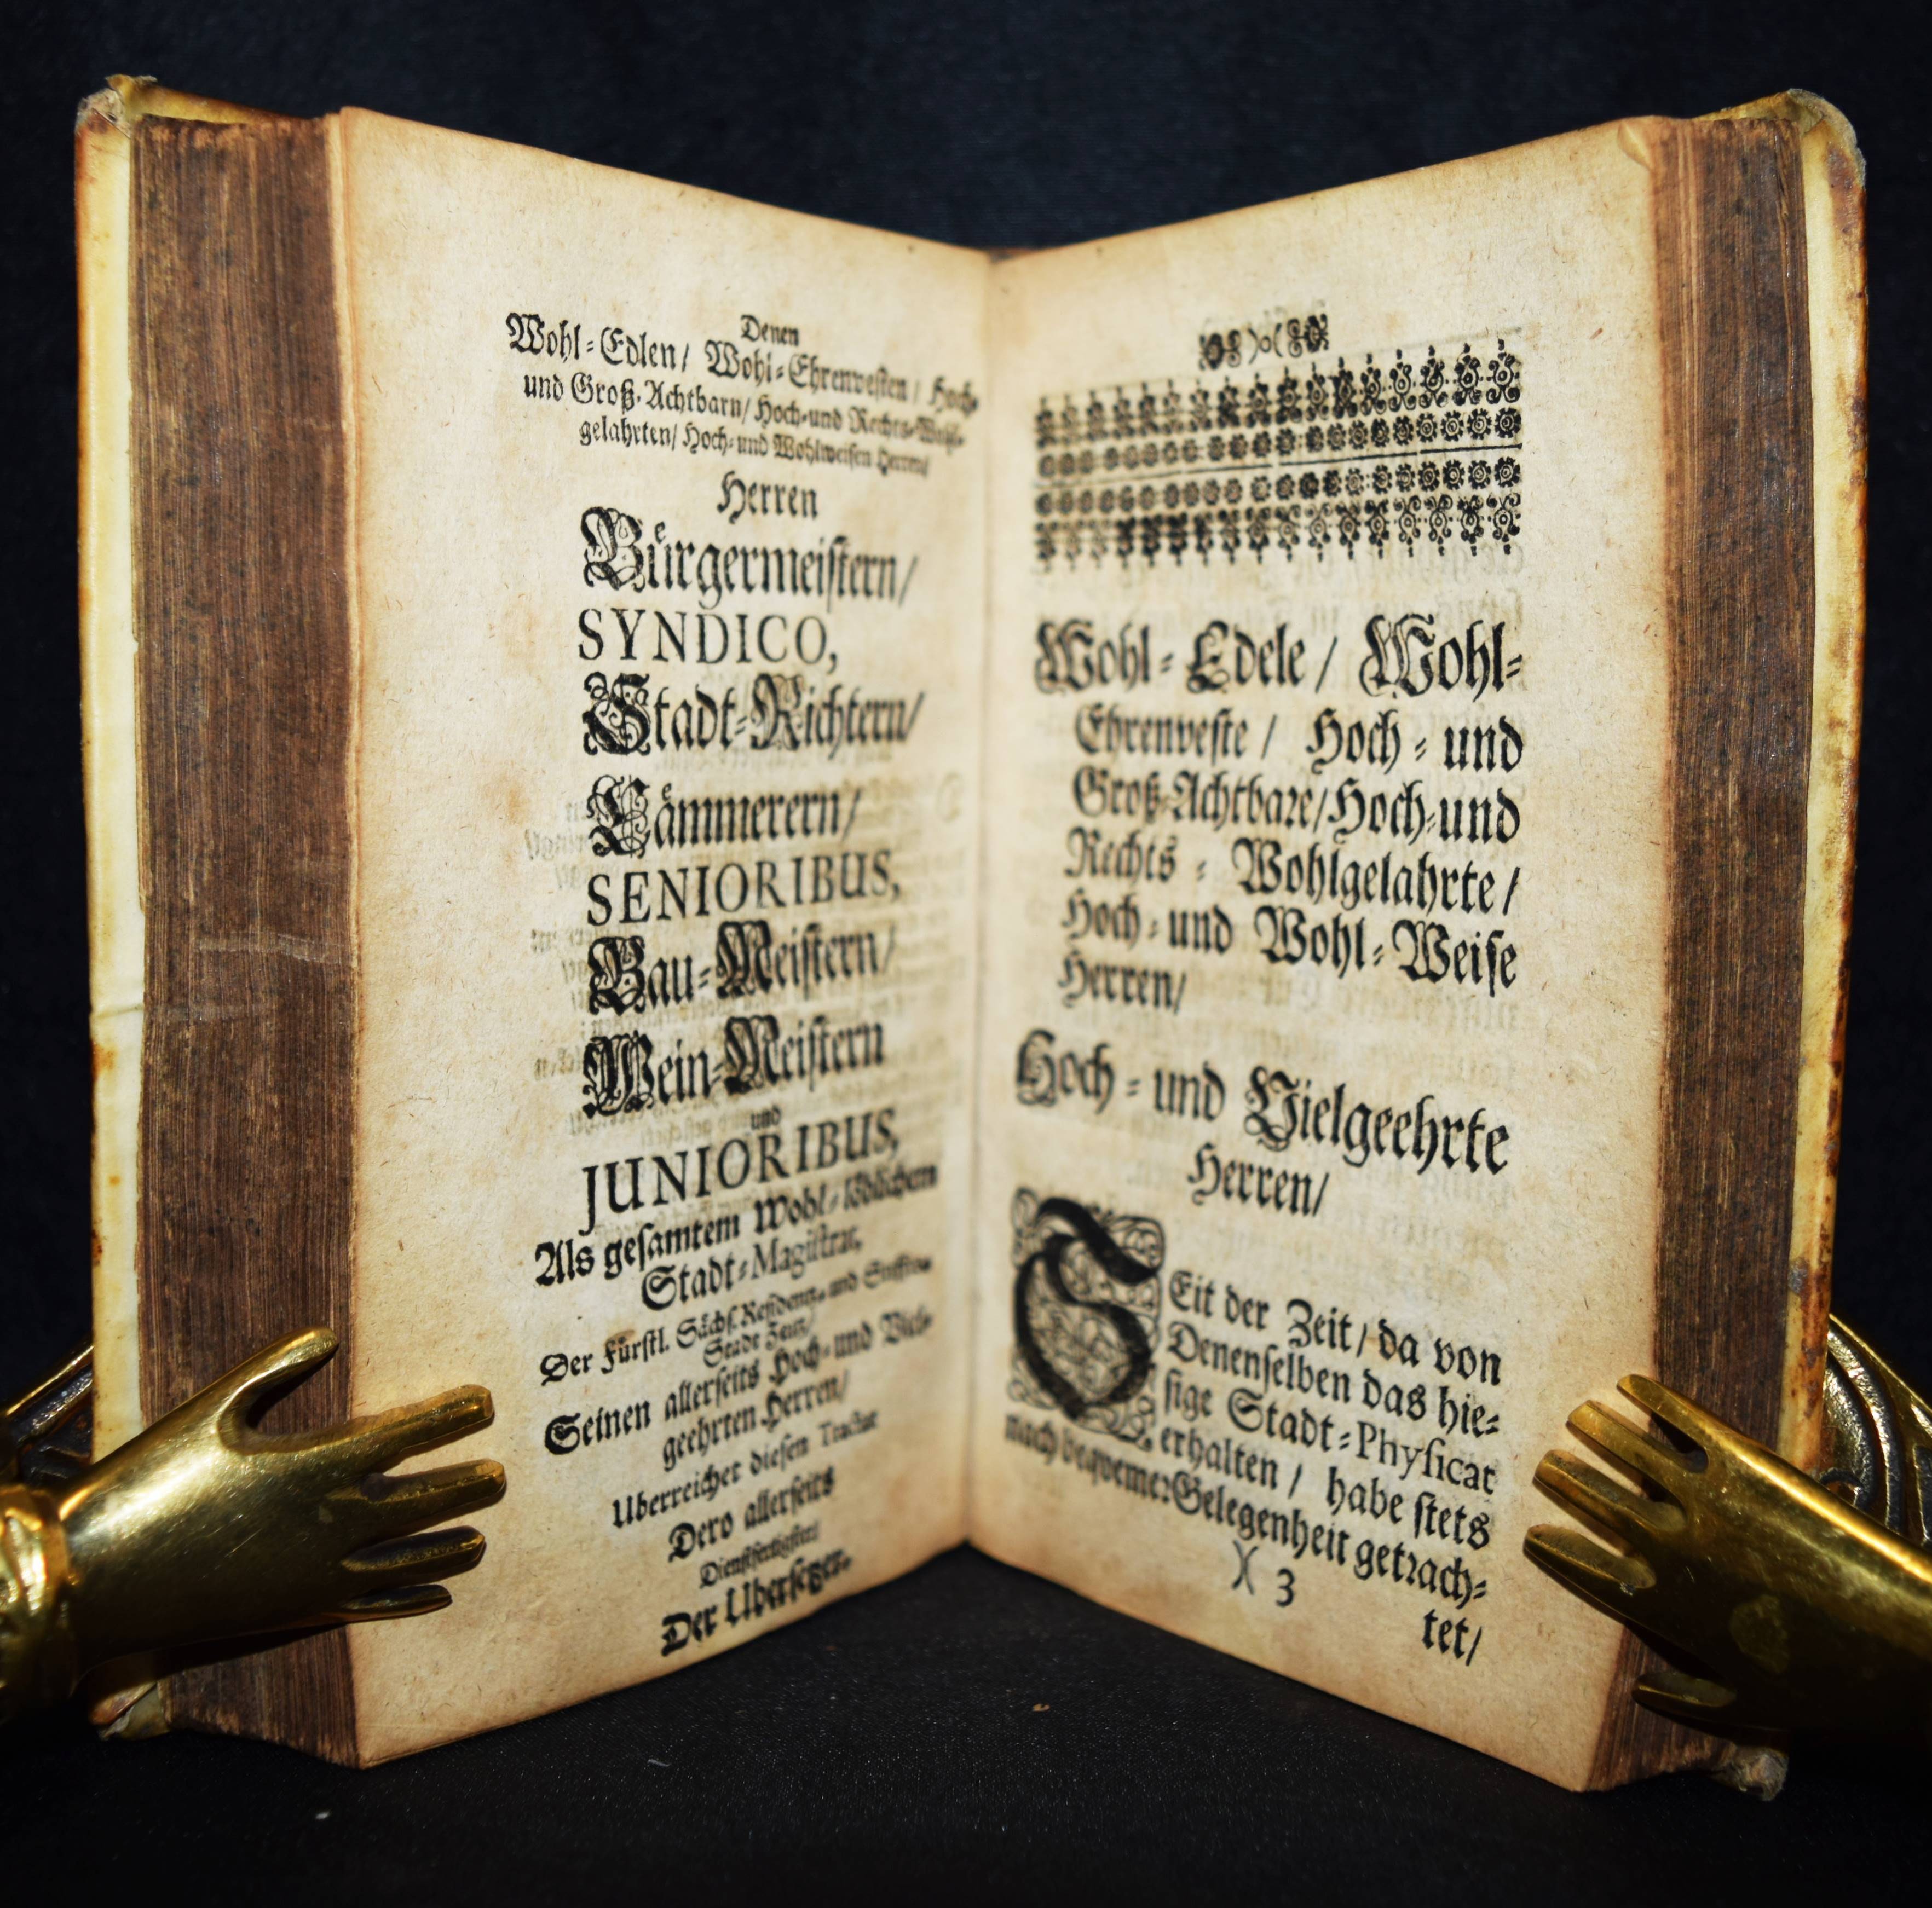 Denen
Wohl-Edlen/ Wohl-Ehrenvesten/ Hoch-
und Groß-Achtbarn/ Hoch-und Rechts-Wohl-
gelahrten/ Hoch-und Wohlweisen Herren/
Herren
Bürgermeistern/
SYNDICO,
Stadt-Richtern/
Cämmerern/
SENIORIBUS,
Bau-Meistern/
Wein-Meistern
und
JUNIORIBUS,
Als gesamtem Wohl-löblichem
Stadt-Magistrat,
Der Fürstl. Sächs. Residentz-und Stiffts-
Stadt Zeitz/
Seinen allerseits Hoch-und Viel-
geehrten Herren/
Uberreichet diesen Tractat
Dero allerseits
Dienstfertigster/
Der Ubersetzer.
Wohl-Edele/ Wohl-
Ehrenveste/ Hoch-und
Groß-Achtbare/ Hoch-und
Rechts-Wohlgelahrte/
Hoch-und Wohl-Weise
Herren/
Hoch-und Vielgeehrte
Herren/
SEit der Zeit/ da von
Denenselben das hie-
sige Stadt-Physicat
erhalten/ habe stets
nach bequemer Gelegenheit getrach-
)( 3
tet/